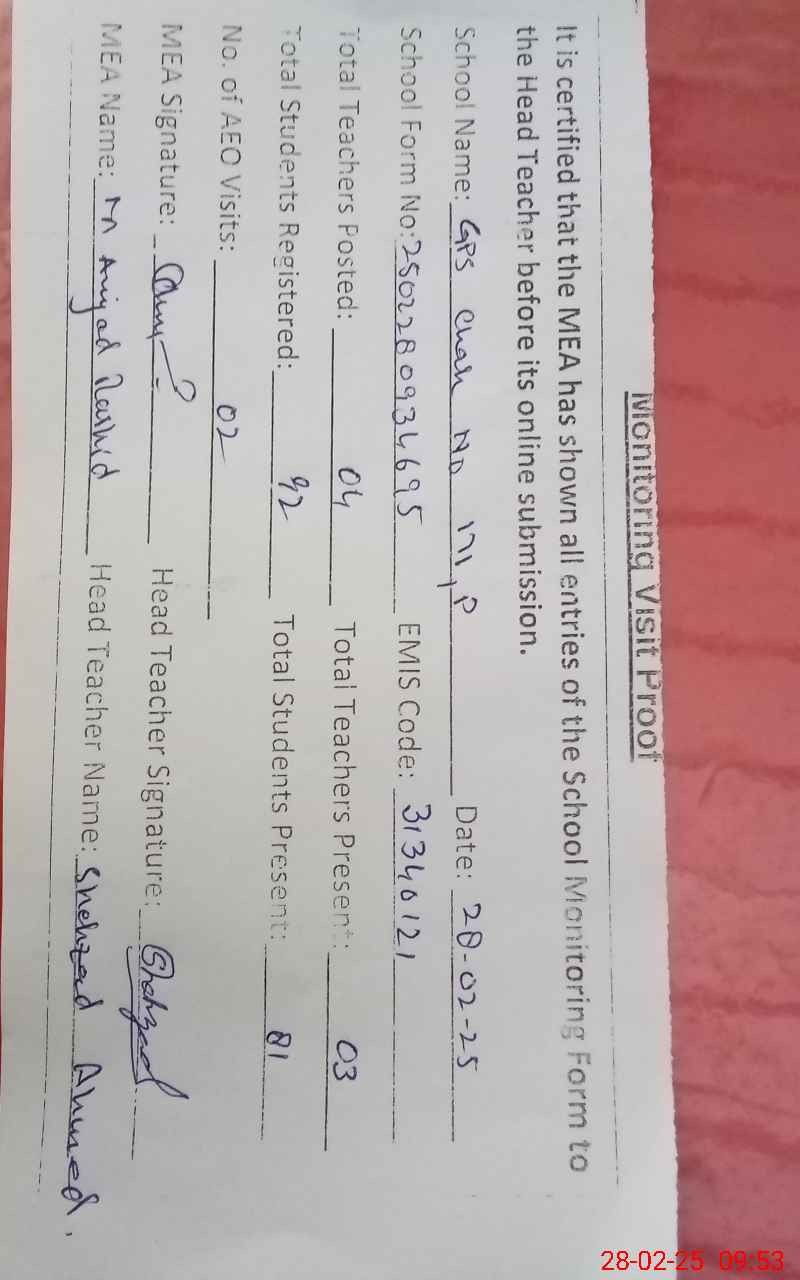 Monitoring Visit Proof
It is certified that the MEA has shown all entries of the School Monitoring Form to
the Head Teacher before its online submission.
School Name: GPS Chak No 171,P Date: 28-02-25
School Form No: 2502280934695 EMIS Code: 31340121
Total Teachers Posted: 04 Total Teachers Present: 03
Total Students Registered: 92 Total Students Present: 81
No. of AEO Visits: 02
MEA Signature: Head Teacher Signature: Shahzad
MEA Name: M Amjad Rashid Head Teacher Name: Shehzad Ahmed.
28-02-25 09:53